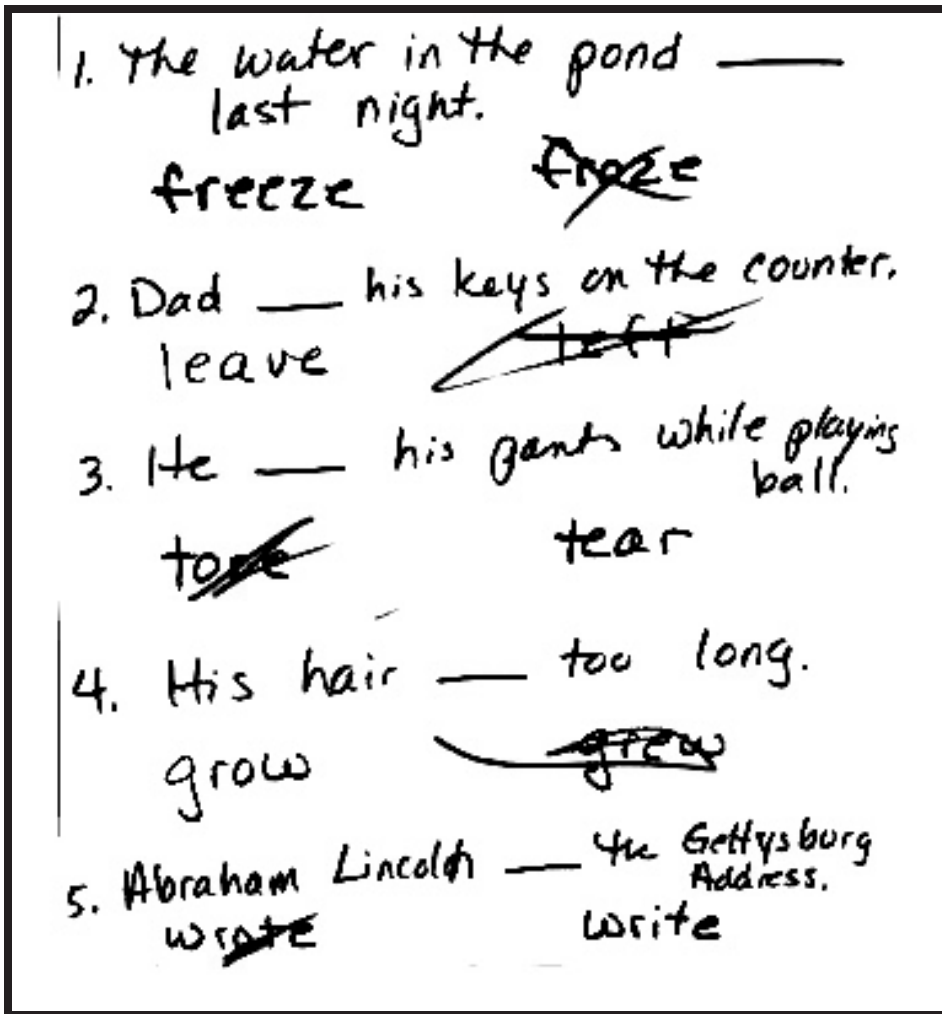 1. The water in the pond ___
last night.
freeze froze
2. Dad ___ his keys on the counter.
leave left
3. He ___ his pants while playing
ball.
tore tear
4. His hair ___ too long.
grow grew
5. Abraham Lincoln ___ the Gettysburg
Address.
wrote write